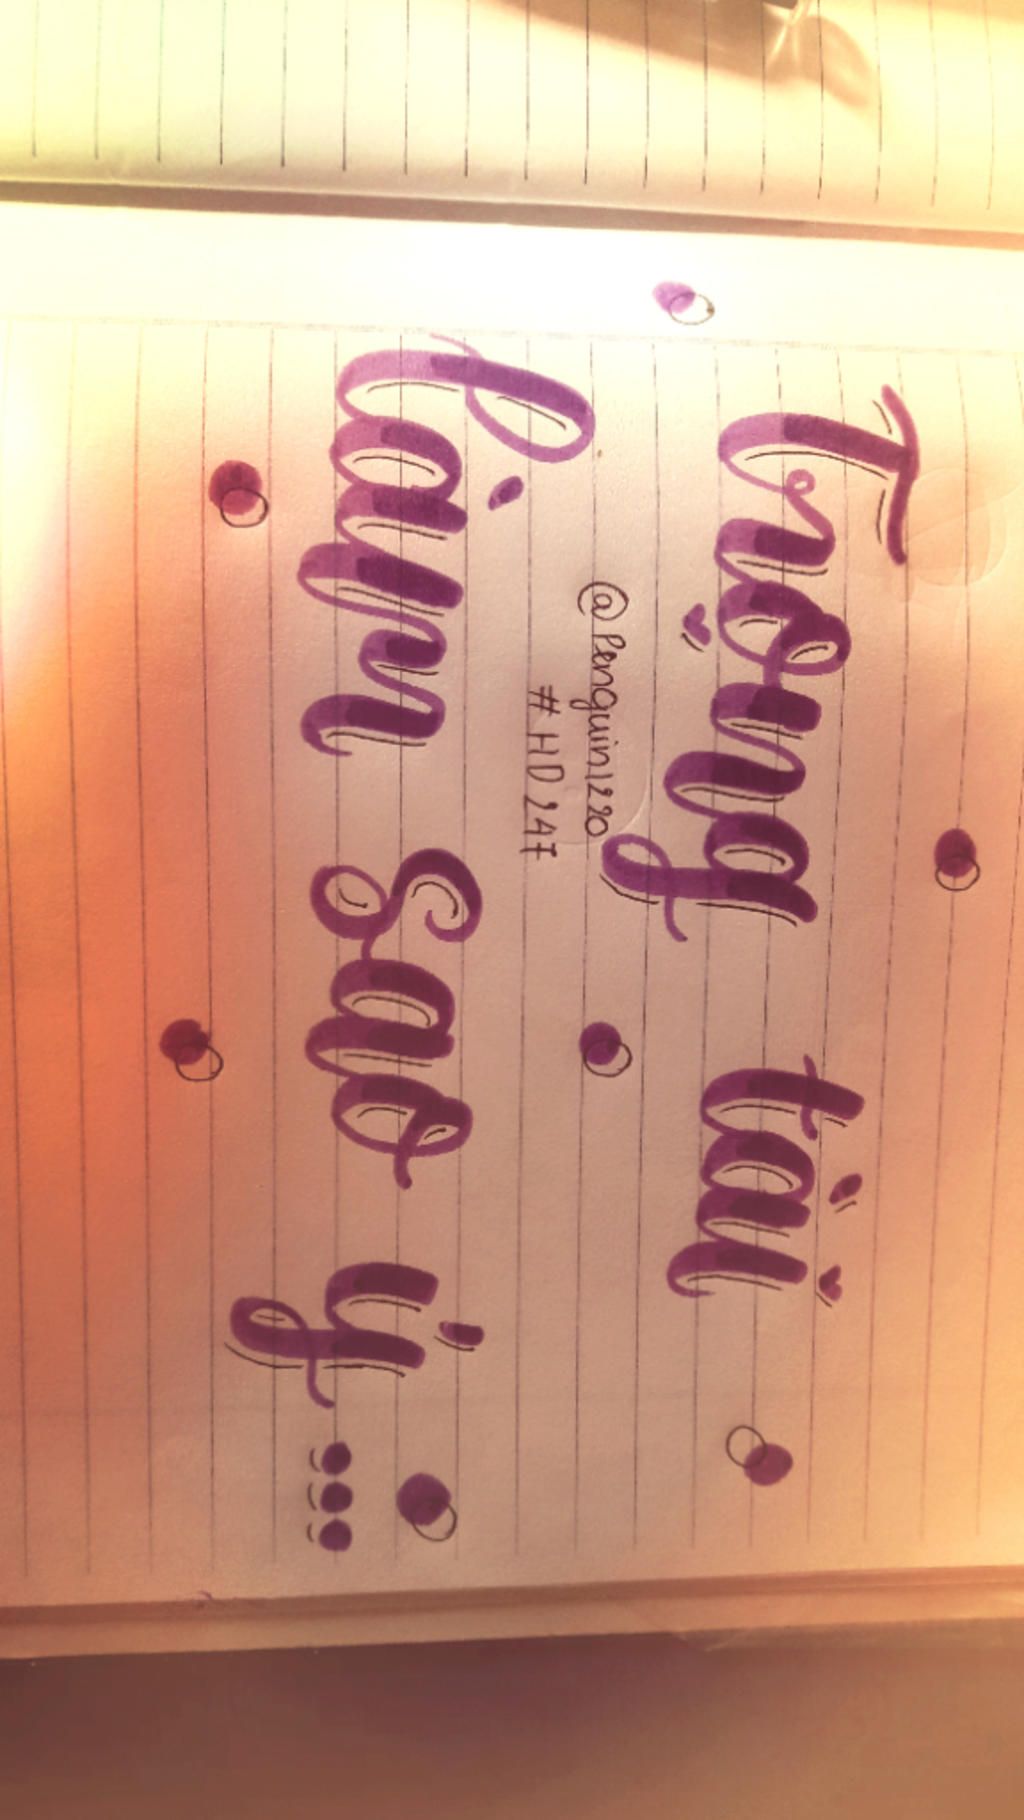 Trọng tài
@Penguin1220
#HD247
làm sao ý...